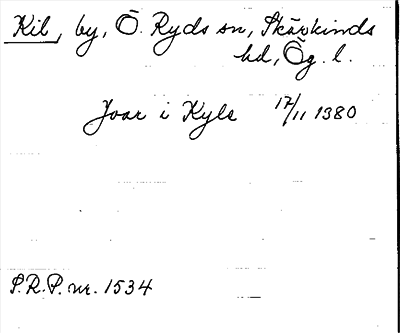 Kil, by, Ö. Ryds sn, Skärkinds
hd, Ög. l.
Joar i Kyle 17/11 1380
S.R.P. nr. 1534